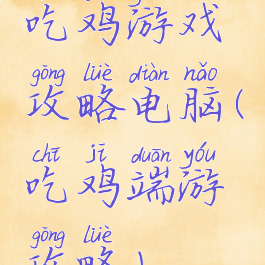 吃鸡游戏
gōng lüè diàn nǎo
攻略电脑(
chī jī duān yóu
吃鸡端游
gōng lüè
攻略)